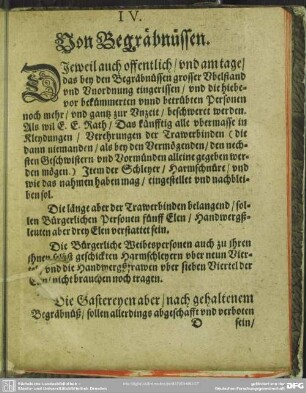 IV.
Von Begräbnüssen.
DIeweil auch offentlich / vnd am tage /
das bey den Begräbnüssen grosser Vbelstand
vnd Vnordnung eingerissen / vnd die hiebe-
vor bekümmerten vnnd betrübten Personen
noch mehr / vnd gantz zur Vnzeit / beschweret werden.
Als wil E. E. Rath / Das künfftig alle vbermasse in
Kleydungen / Verehrungen der Trawerbinden (die
dann niemanden / als bey den Vermögenden / den nech-
sten Geschwistern vnd Vormünden alleine gegeben wer-
den mögen) Item der Schleyer / Harmschnüre / vnd
wie das nahmen haben mag / eingestellet vnd nachblei-
ben sol.
Die länge aber der Trawerbinden belangend / sol-
len Bürgerlichen Personen fünff Elen / Handwergs-
leuten aber drey Elen verstattet sein.
Die Bürgerliche Weibespersonen auch zu ihren
ihnen geschickten Harmschleyern vber neun Vier-
vnd die Handwergsfrawen vber sieben Viertel der
nicht brauchen noch tragen.
Die Gastereyen aber / nach gehaltenem
Begräbnüß / sollen allerdings abgeschafft vnd verboten
D sein /